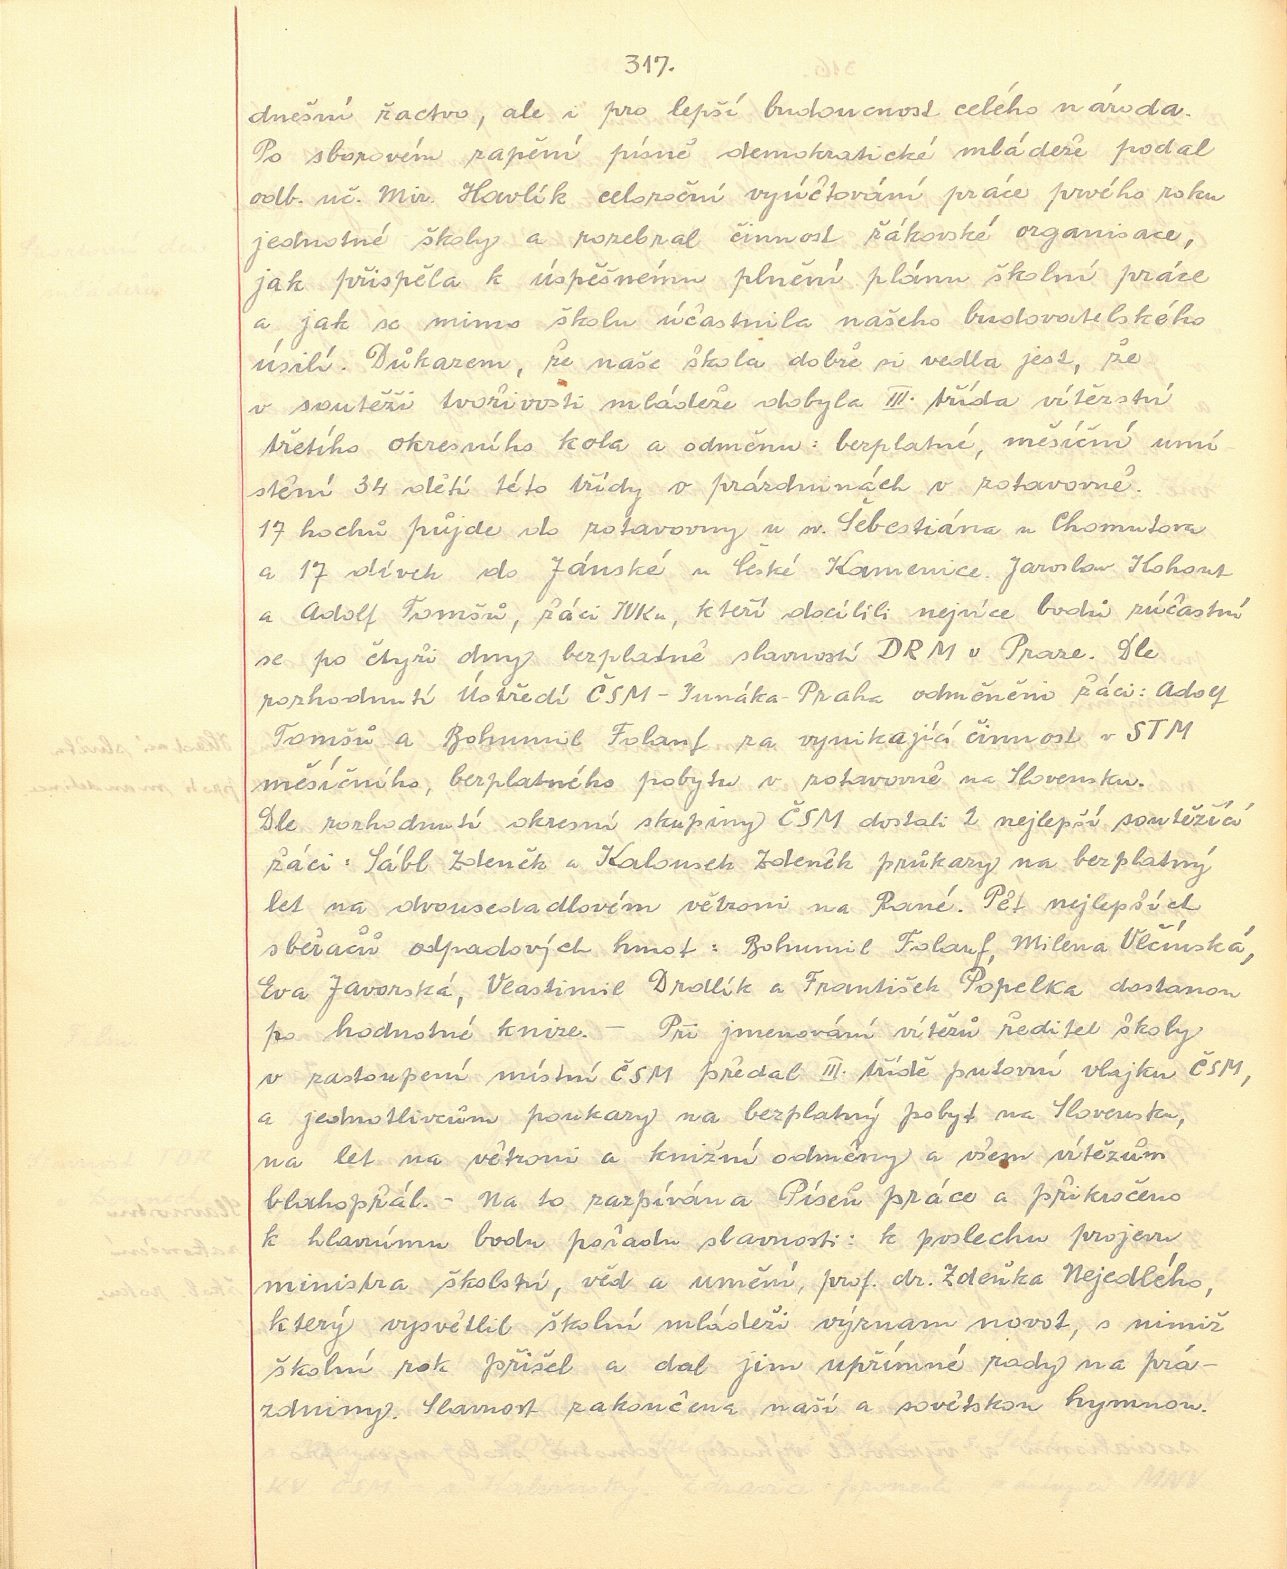 317.
dnešní žactvo, ale i pro lepší budoucnost celého národa.
Po sborovém zapění písně demokratické mládeže podal
odb. uč. Mir. Havlík celoroční vyúčtování práce prvého roku
jednotné školy a rozebral činnost žákovské organisace,
jak přispěla k úspěšnému plnění plánu školní práce
a jak se mimo školu účastnila našeho budovatelského
úsilí. Důkazem, že naše škola dobře si vedla jest, že
v soutěži tvořivosti mládeže dobyla III. třída vítězství
třetího okresního kola a odměnu: bezplatné, měsíční umí-
stění 34 dětí této třídy o prázdninách v zotavovně.
17 hochů půjde do zotavovny u sv. Šebestiána u Chomutova
a 17 dívek do Jánské u České Kamenice. Jaroslav Kohout
a Adolf Tomšů, žáci IVKu, kteří docílili nejvíce bodů zúčastní
se po čtyři dny bezplatně slavností DRM v Praze. Dle
rozhodnutí Ústředí ČSM - Junáka - Praha odměněni žáci: Adolf
Tomšů a Bohumil Folauf za vynikající činnost v STM
měsíčního, bezplatného pobytu v zotavovně na Slovensku.
Dle rozhodnutí okresní skupiny ČSM dostali 2 nejlepší soutěžící
žáci: Sábl Zdeněk a Kalousek Zdeněk průkazy na bezplatný
let na dvousedadlovém větroni na Rané. Pět nejlepších
sběračů odpadových hmot: Bohumil Folauf, Milena Vlčinská,
Eva Javorská, Vlastimil Drdlík a František Popelka dostanou
po hodnotné knize. - Při jmenování vítězů ředitel školy
v zastoupení místní ČSM předal III. třídě putovní vlajku ČSM,
a jednotlivcům poukazy na bezplatný pobyt na Slovensku,
na let na větroni a knižní odměny a všem vítězům
blahopřál. - Na to zazpívána Píseň práce a přikročeno
k hlavnímu bodu pořadu slavnosti: k poslechu projevu
ministra školství, věd a umění, prof. dr. Zdeňka Nejedlého,
který vysvětlil školní mládeži význam novot, s nimiž
školní rok přišel a dal jim upřímné rady na prá-
zdniny. Slavnost zakončena naší a sovětskou hymnou.